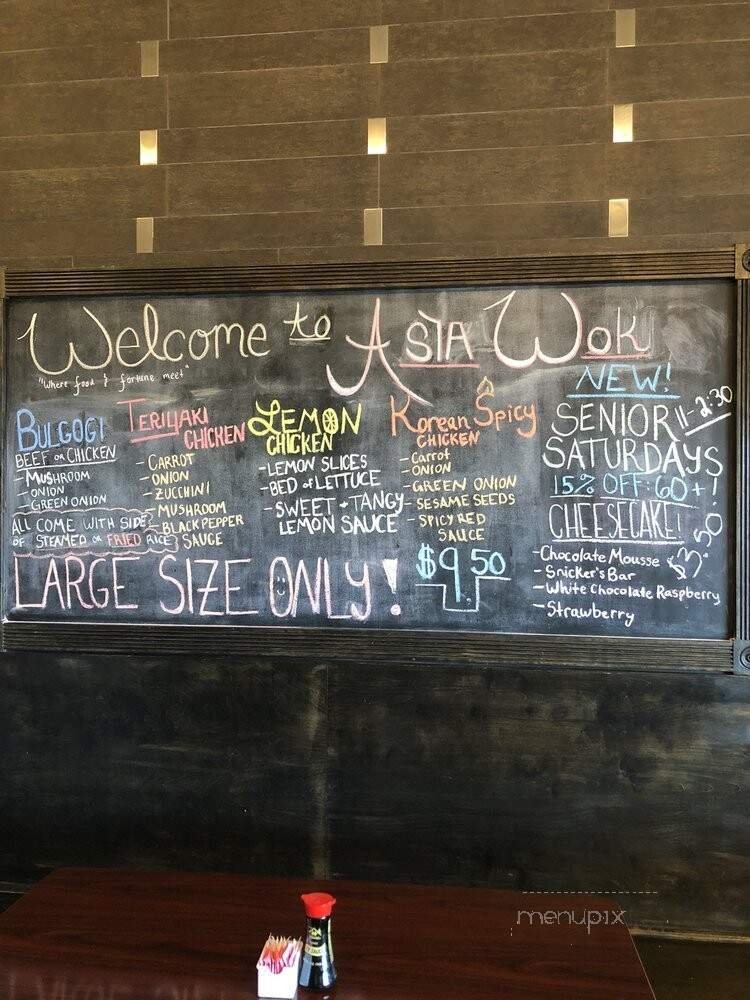 Welcome to ASIA WOK
"Where food & fortune meet"
BULGOGI
BEEF OR CHICKEN
- MUSHROOM
- ONION
- GREEN ONION
ALL COME WITH SIDE
OF STEAMED OR FRIED RICE
TERIYAKI
CHICKEN
- CARROT
- ONION
- ZUCCHINI
- MUSHROOM
- BLACK PEPPER
SAUCE
LEMON
CHICKEN
- LEMON SLICES
- BED of LETTUCE
- SWEET + TANGY
LEMON SAUCE
Korean Spicy
CHICKEN
- Carrot
- ONION
- GREEN ONION
- SESAME SEEDS
- SPICY RED
SAUCE
LARGE SIZE ONLY!
$9.50
NEW!
SENIOR 11-2:30
SATURDAYS
15% OFF: 60+!
CHEESECAKE! $3.50
- Chocolate Mousse
- Snicker's Bar
- White Chocolate Raspberry
- Strawberry
menupix